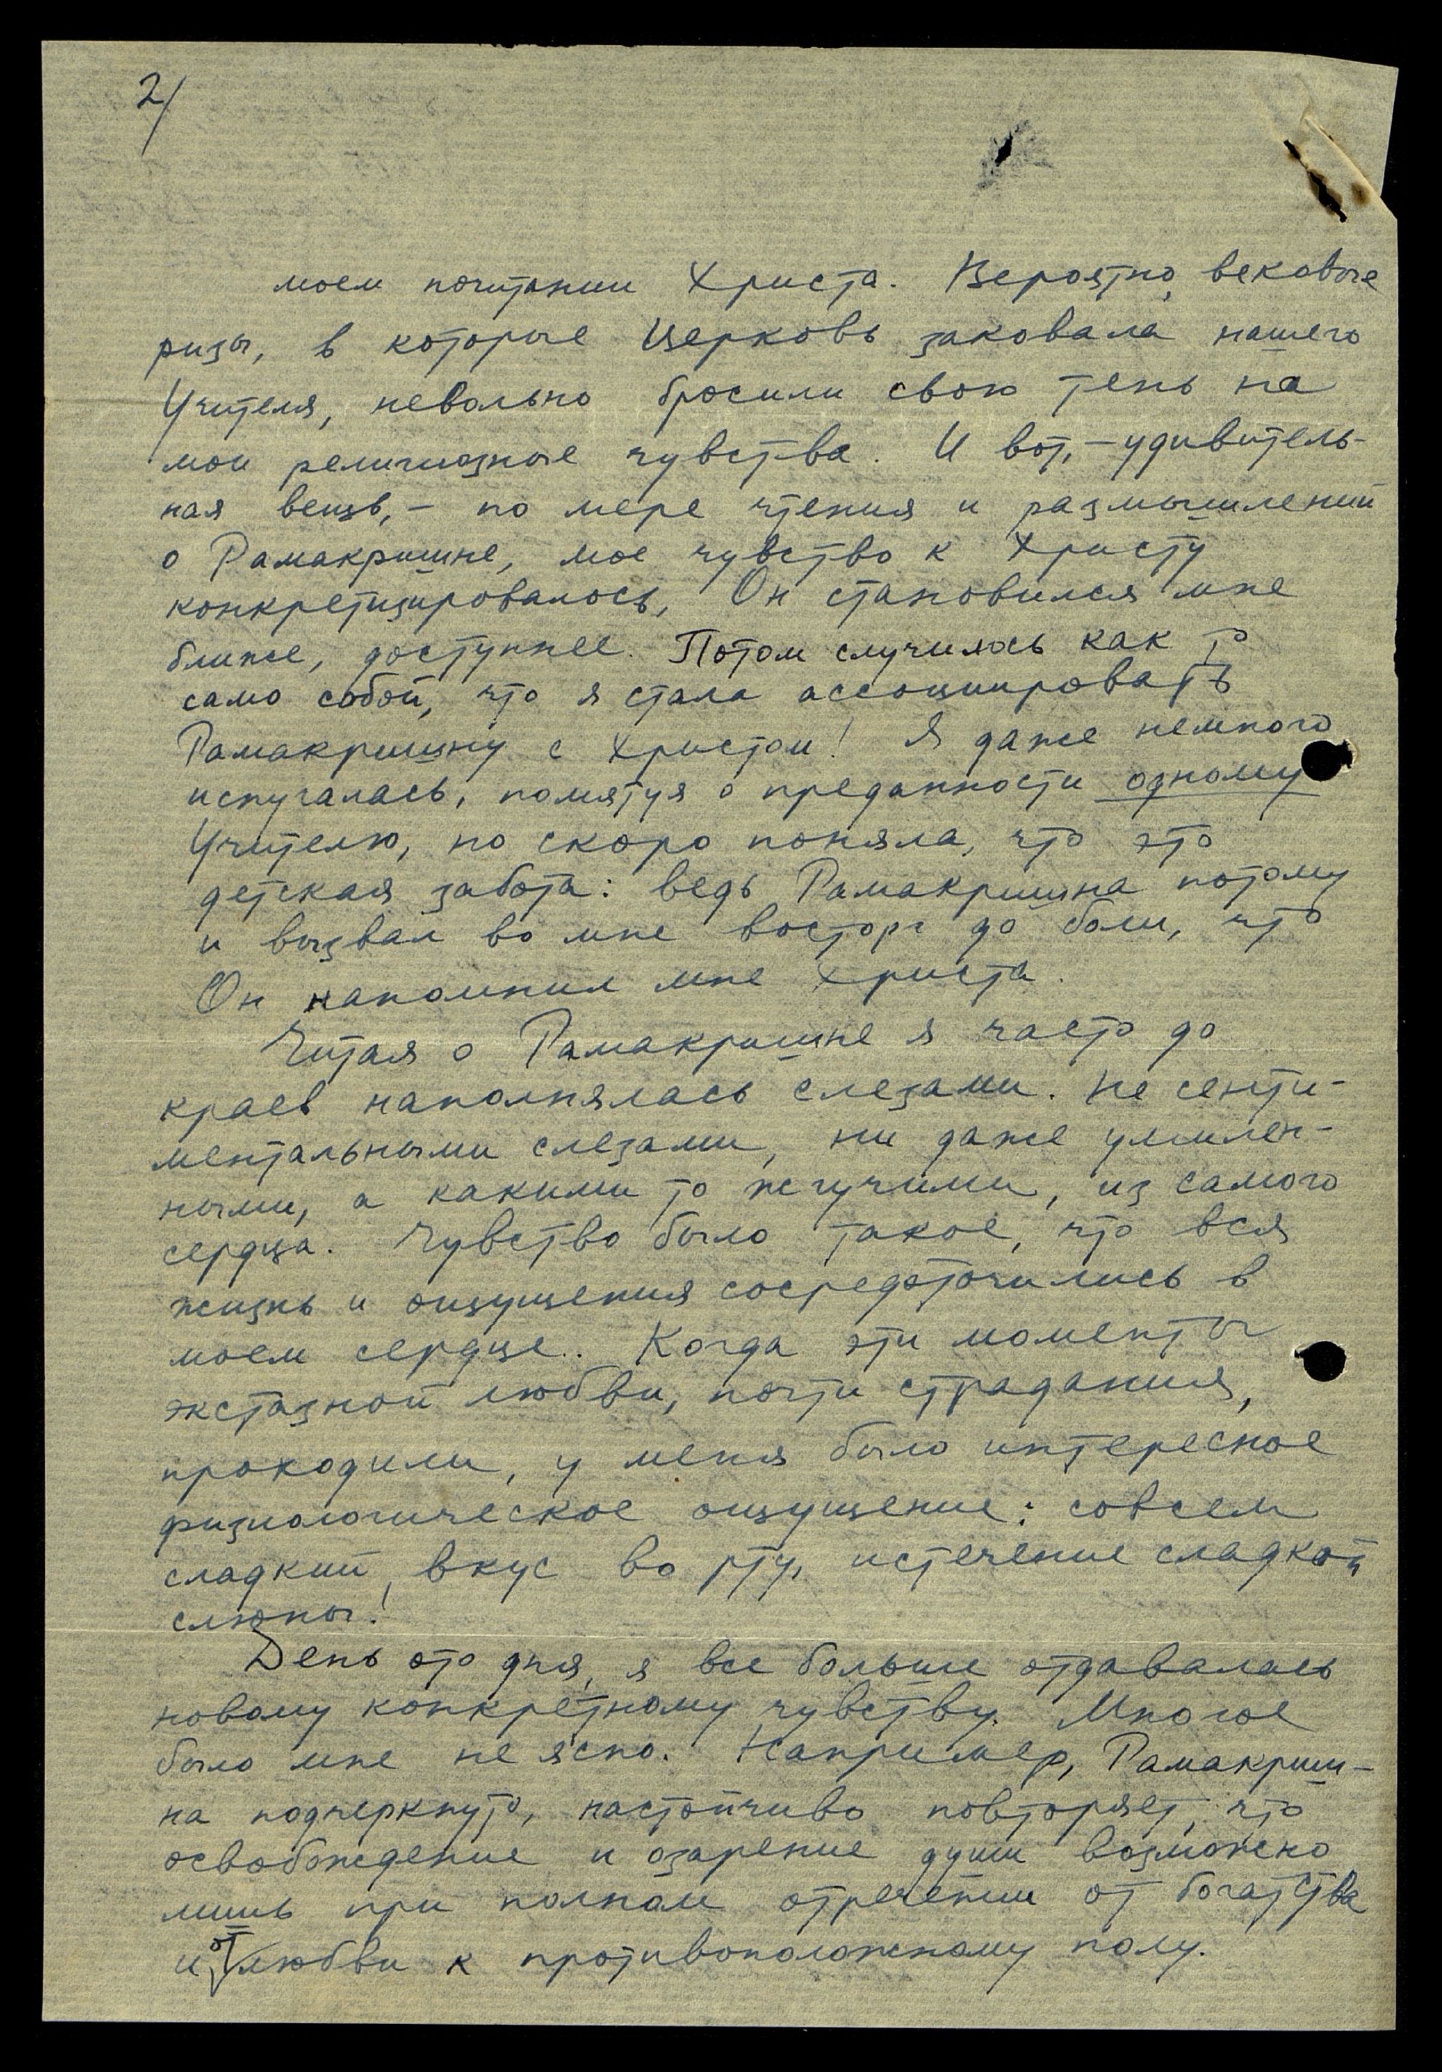 2/
моем почитании Христа. Вероятно, вековые
ризы, в которые Церковь заковала нашего
Учителя, невольно бросили свою тень на
мои религиозные чувства. И вот, – удивитель-
ная вещь, – по мере чтения и размышлений
о Рамакришне, мое чувство к Христу
конкретизировалось, Он становился мне
ближе, доступнее. Потом случилось как то
само собой, что я стала ассоциировать
Рамакришну с Христом! Я даже немного
испугалась, помятуя о преданности одному
Учителю, но скоро поняла, что это
детская забота: ведь Рамакришна потому
и вызвал во мне восторг до боли, что
Он напомнил мне Христа.
Читая о Рамакришне я часто до
краев наполнялась слезами. Не сенти-
ментальными слезами, ни даже умилен-
ными, а какими то жгучими, из самого
сердца. Чувство было такое, что вся
жизнь и ощущения сосредоточились в
моем сердце.. Когда эти моменты
экстазной любви, почти страдания,
проходили, у меня было интересное
физиологическое ощущение: совсем
сладкий вкус во рту, истечение сладкой
слюны!
День ото дня, я все больше отдавалась
новому конкретному чувству. Многое
было мне не ясно. Например, Рамакриш-
на подчеркнуто, настойчиво повторяет, что
освобождение и озарение души возможно
лишь при полном отречении от богатства
и от любви к противоположному полу.